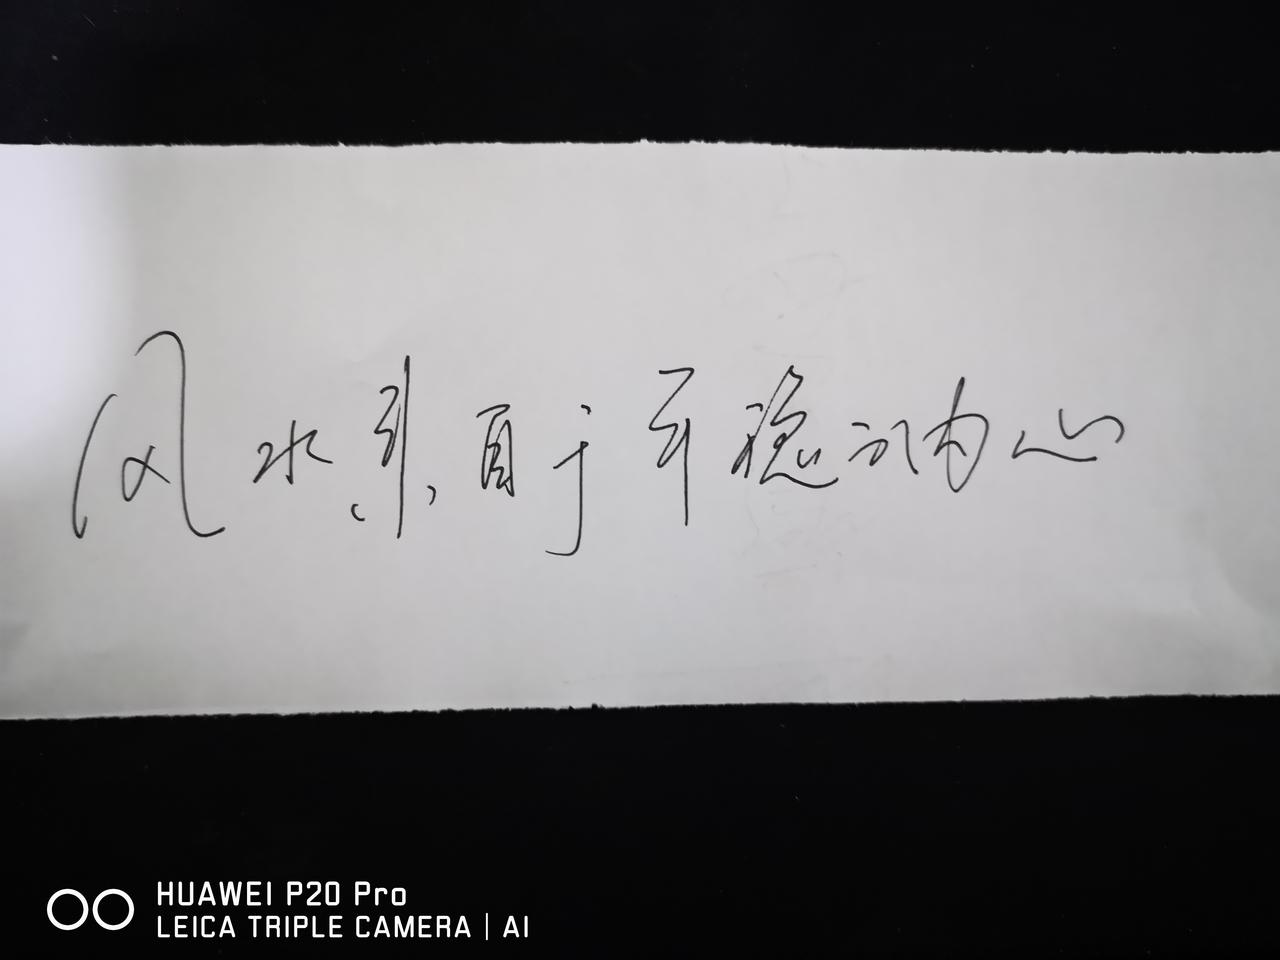 风水系自于平稳的内心
HUAWEI P20 Pro
LEICA TRIPLE CAMERA | AI